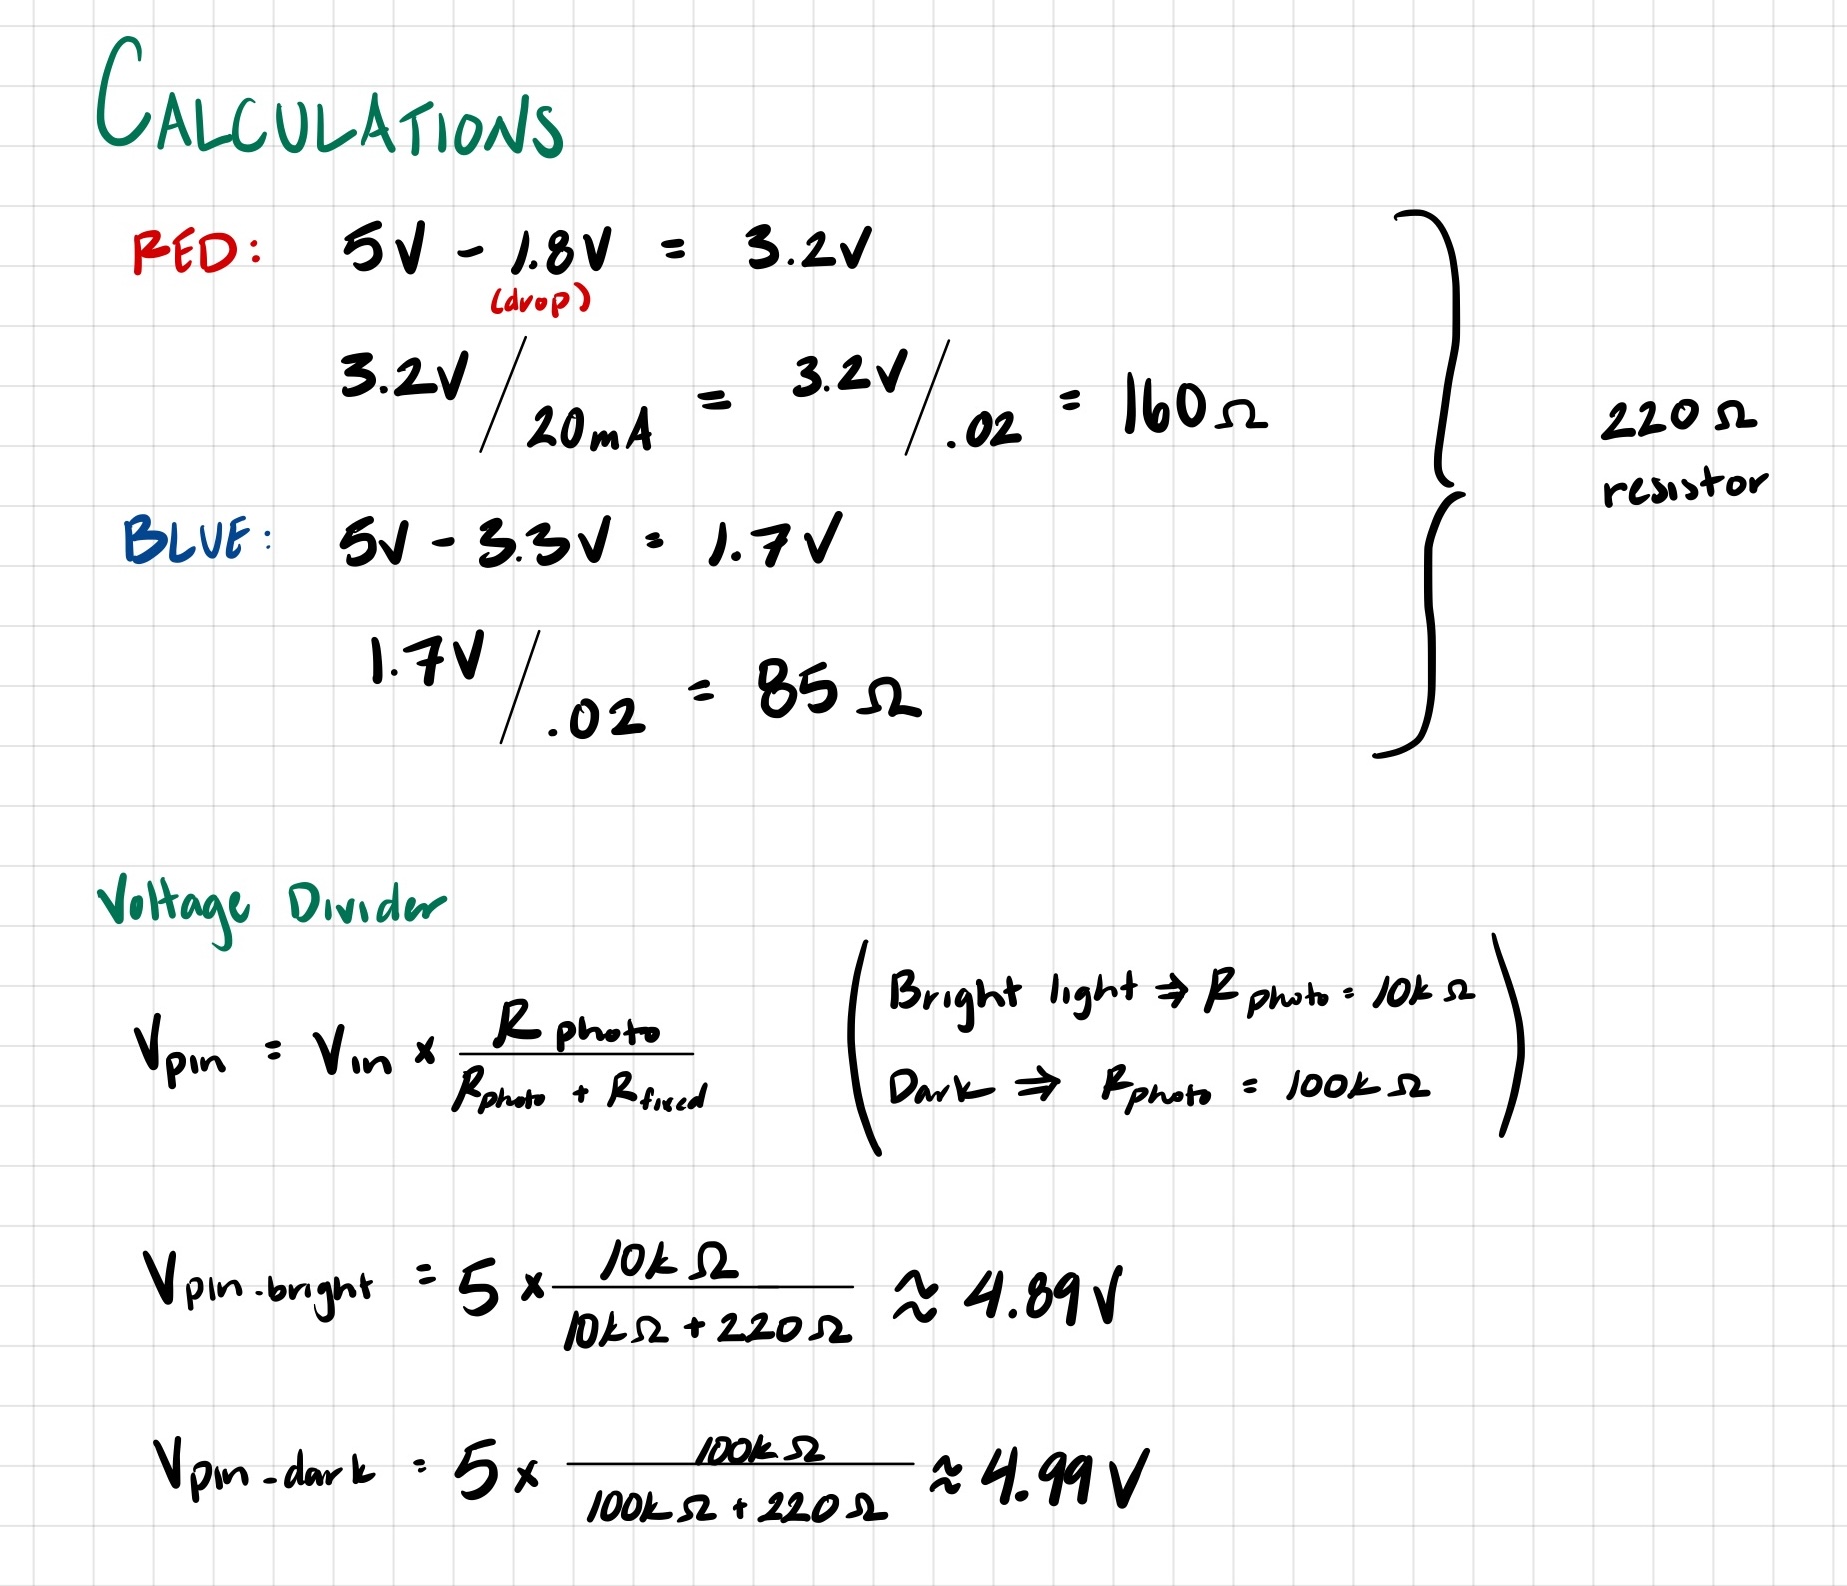 CALCULATIONS
RED: 5V - 1.8V = 3.2V
(drop)
3.2V / 20mA = 3.2V / .02 = 160Ω
220Ω
resistor
BLUE: 5V - 3.3V = 1.7V
1.7V / .02 = 85Ω
Voltage Divider
Vpin = Vin × Rphoto / Rphoto + Rfixed
(Bright light ⇒ Rphoto = 10kΩ
Dark ⇒ Rphoto = 100kΩ)
Vpin-bright = 5 × 10kΩ / 10kΩ + 220Ω ≈ 4.89V
Vpin-dark = 5 × 100kΩ / 100kΩ + 220Ω ≈ 4.99V